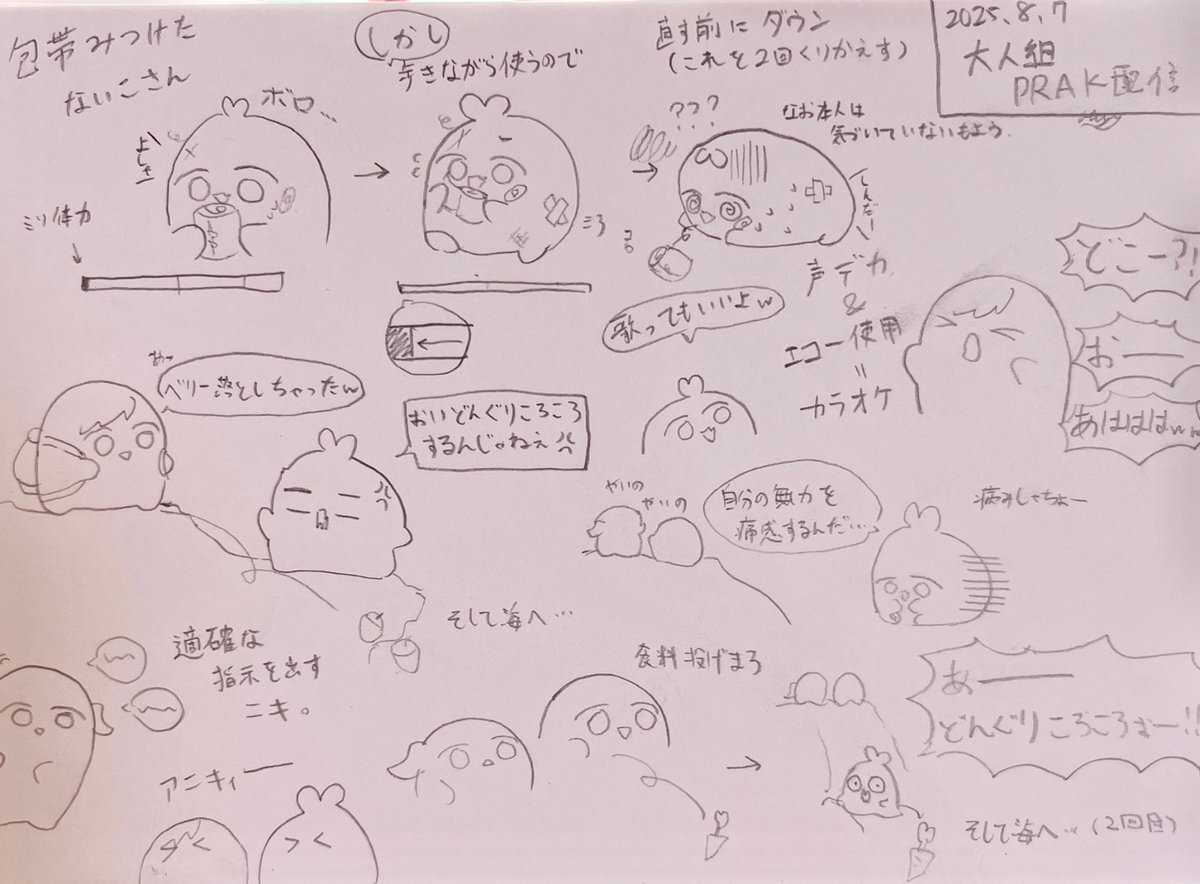 2025.8.7
大人組
PRAK配信
包帯みつけた
ないこさん
ボロ…
よしき
ミリ体力
しかし
歩きながら使うので
直す前にダウン
(これを2回くりかえす)
???
なお本人は
気づいていないもよう.
しんだい
どこー?!
おー
あはははww
声デカ
&
エコー使用
=
カラオケ
歌ってもいいよw
あっ
ベリー落としちゃったw
おいどんぐりころころ
するんじゃねぇ
そして海へ…
やいの
やいの
自分の無力を
痛感するんだ…
病みしゃちょー
適確な
指示を出す
ニキ。
アニキィー
食料投げまろ
あー
どんぐりころころぉー!!
そして海へ…(2回目)